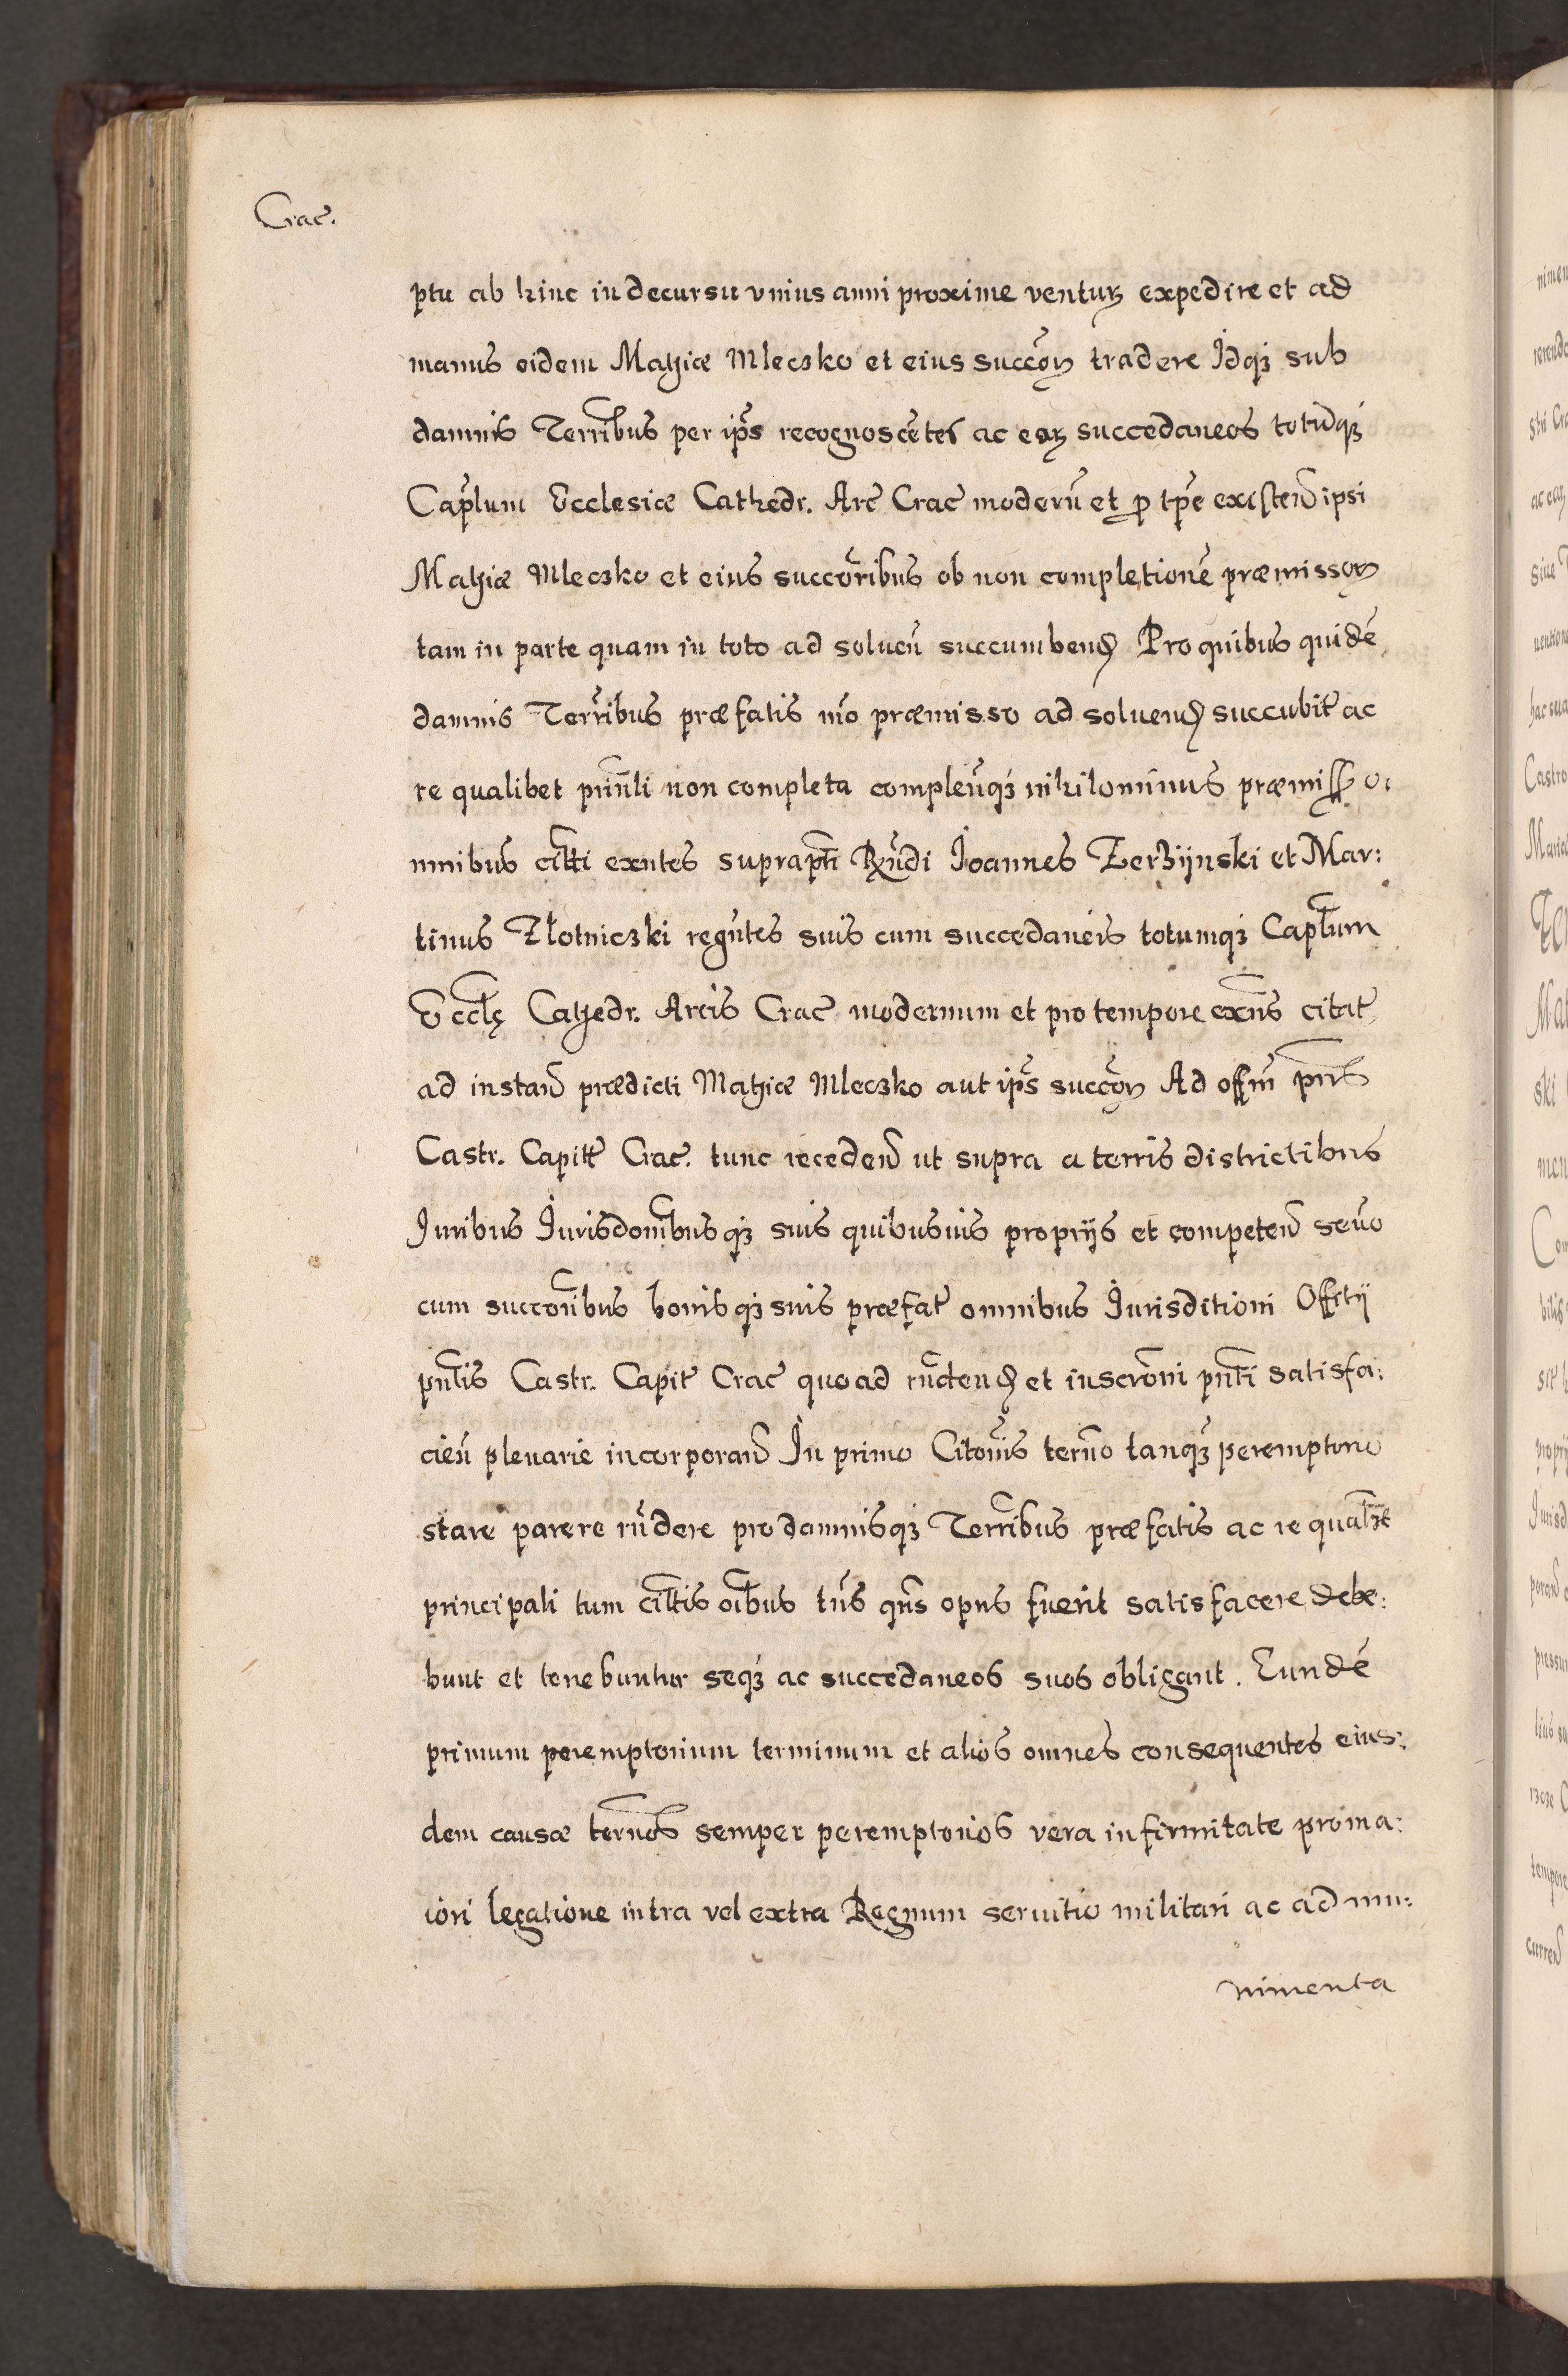 Crac̃.
ptu ab hinc in decursu vnius anni proxime ventuꝝ expedire et ad
manus eidem Mathiæ Mleczko et eius succõꝝ tradere Idqꝫ sub
damnis Terrr̃ibus per ip̃s recognoscẽtes ac eoꝝ succedaneos totũqꝫ
Cap̃lum Ecclesiæ Cathedr. Arc̃ Crac̃ modernũ et ꝓ tp̃e existeñ ipsi
Mathiæ Mleczko et eius succõribus ob non completionẽ præmissoꝝ
tam in parte quam in toto ad solueñ succumbenđ Pro quibus quidẽ
damnis Terr̃ibus præfatis mõ præmisso ad soluenđ succubit̃ ac
re qualibet prin̄li non completa compleñqꝫ nihilominus præmiss̃ o:
mnibus cittĩ exñtes suprap̃tĩ Rñdi Ioannes Zerzijnski et Mar:
tinus Złotniczki regẽntes suis cum succedaneis totumqꝫ Cap̃lum
Eccłę Cathedr. Arcis Crac̃ modernum et pro tempore exñs citat̃
ad instañ prædicti Mathiæ Mleczko aut ip̃s succõꝝ Ad offm̃ pñs
Castr. Capitt̃ Crac̃. tunc recedeñ ut supra a terris districtibus
Iuribus Iurisdonĩbusqꝫ suis quibusuis proprijs et competeñ seũo
cum succorĩbus bonisqꝫ suis præfat̃ omnibus Iurisditioni Offitij
pñtis Castr. Capit̃ Crac̃ quo ad rñdenđ et inscrõni pñti satisfa:
cieñ plenarie incorporañ In primo Citonĩs terñ̃o tanqꝫ peremptorio
stare parere rñdere pro damnisqꝫ Terr̃ibus præfatis ac re qualibꝫ
principali tum cittĩs oĩbus tñs qñs opus fuerit satisfacere debe:
bunt et tenebuntur seqꝫ ac succedaneos suos obligant. Eundẽ
primum peremptorium terminum et alios omnes consequentes eius:
dem causæ termĩos semper peremptorios vera infirmitate pro ma:
iori legatione intra vel extra Regnum seruitio militari ac ad mu:
nimenta